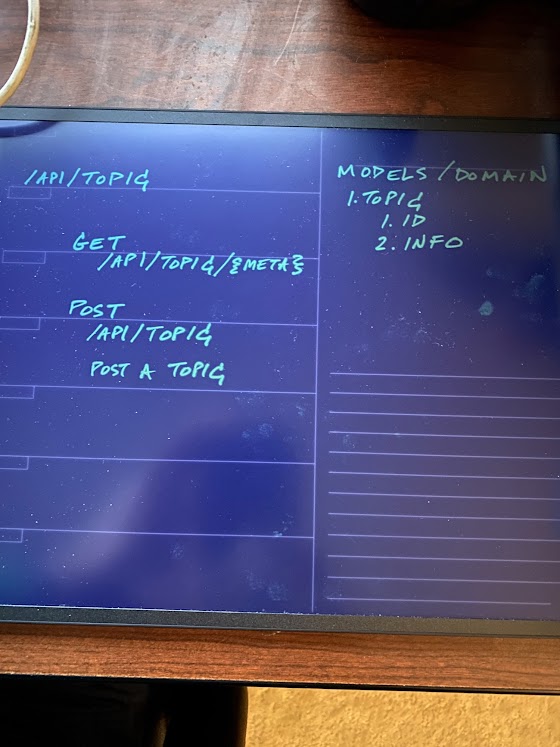 /API/TOPIC
GET
/API/TOPIC/{META}
POST
/API/TOPIC
POST A TOPIC
MODELS/DOMAIN
1. TOPIC
1. ID
2. INFO